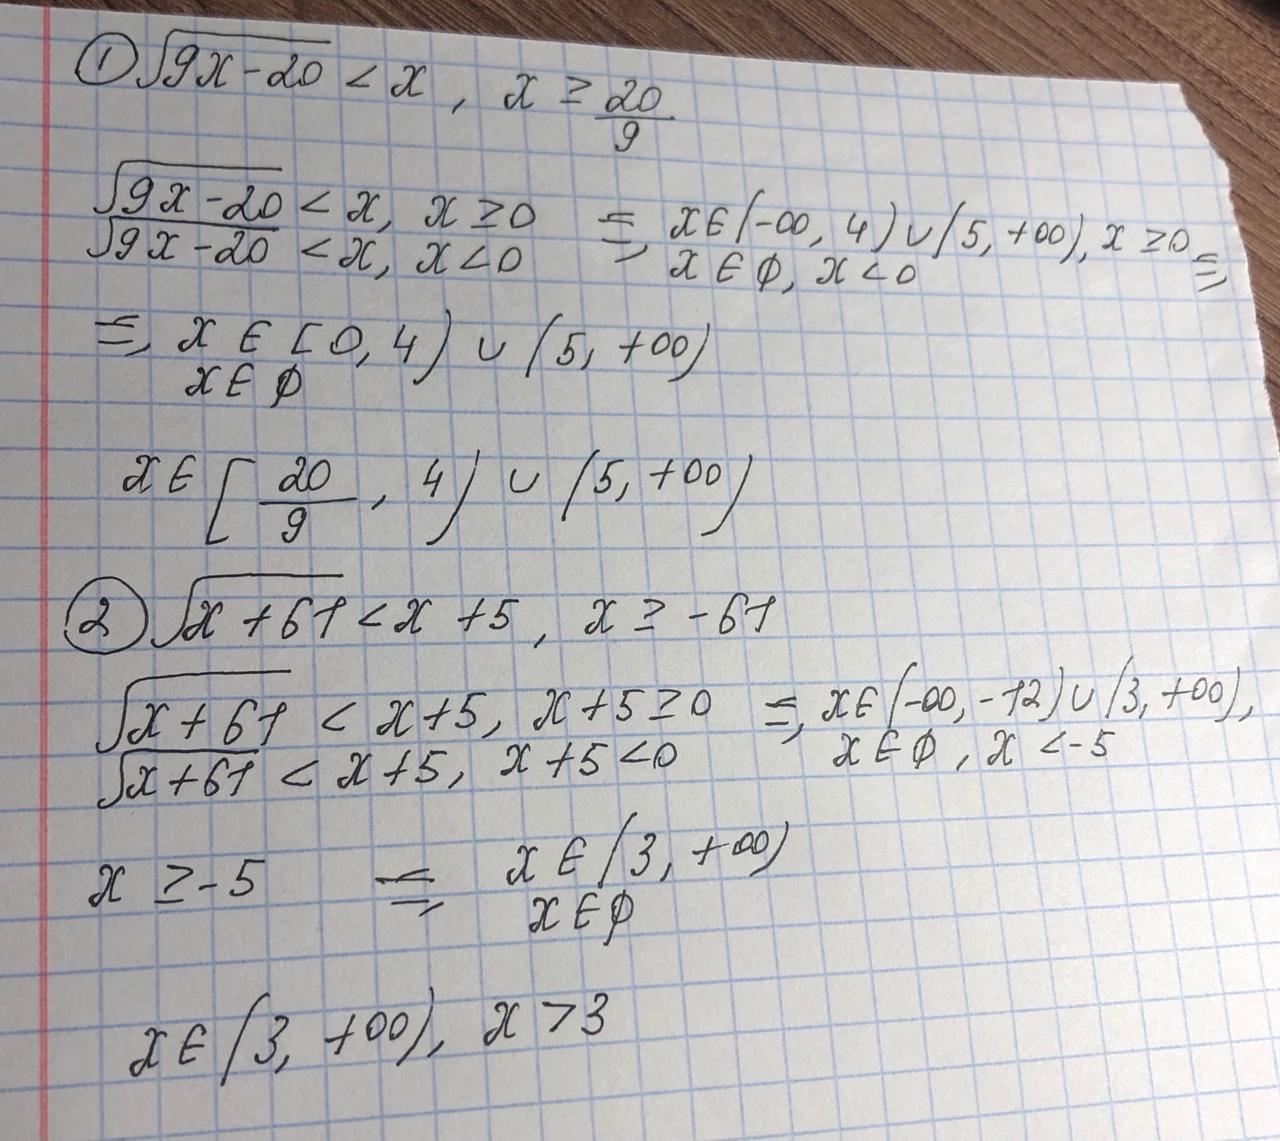 ① √(9x-20) < x, x ≥ 20/9
√(9x-20) < x, x ≥ 0 ⇒ x∈(-∞, 4)∪(5, +∞), x ≥ 0 ⇒
√(9x-20) < x, x < 0 x∈∅, x < 0
⇒ x∈[0, 4)∪(5, +∞)
x∈∅
x∈[20/9, 4)∪(5, +∞)
② √(x+61) < x+5, x ≥ -61
√(x+61) < x+5, x+5 ≥ 0 ⇒ x∈(-∞, -12)∪(3, +∞),
√(x+61) < x+5, x+5 < 0 x∈∅, x < -5
x ≥ -5 ⇒ x∈(3, +∞)
x∈∅
x∈(3, +∞), x > 3